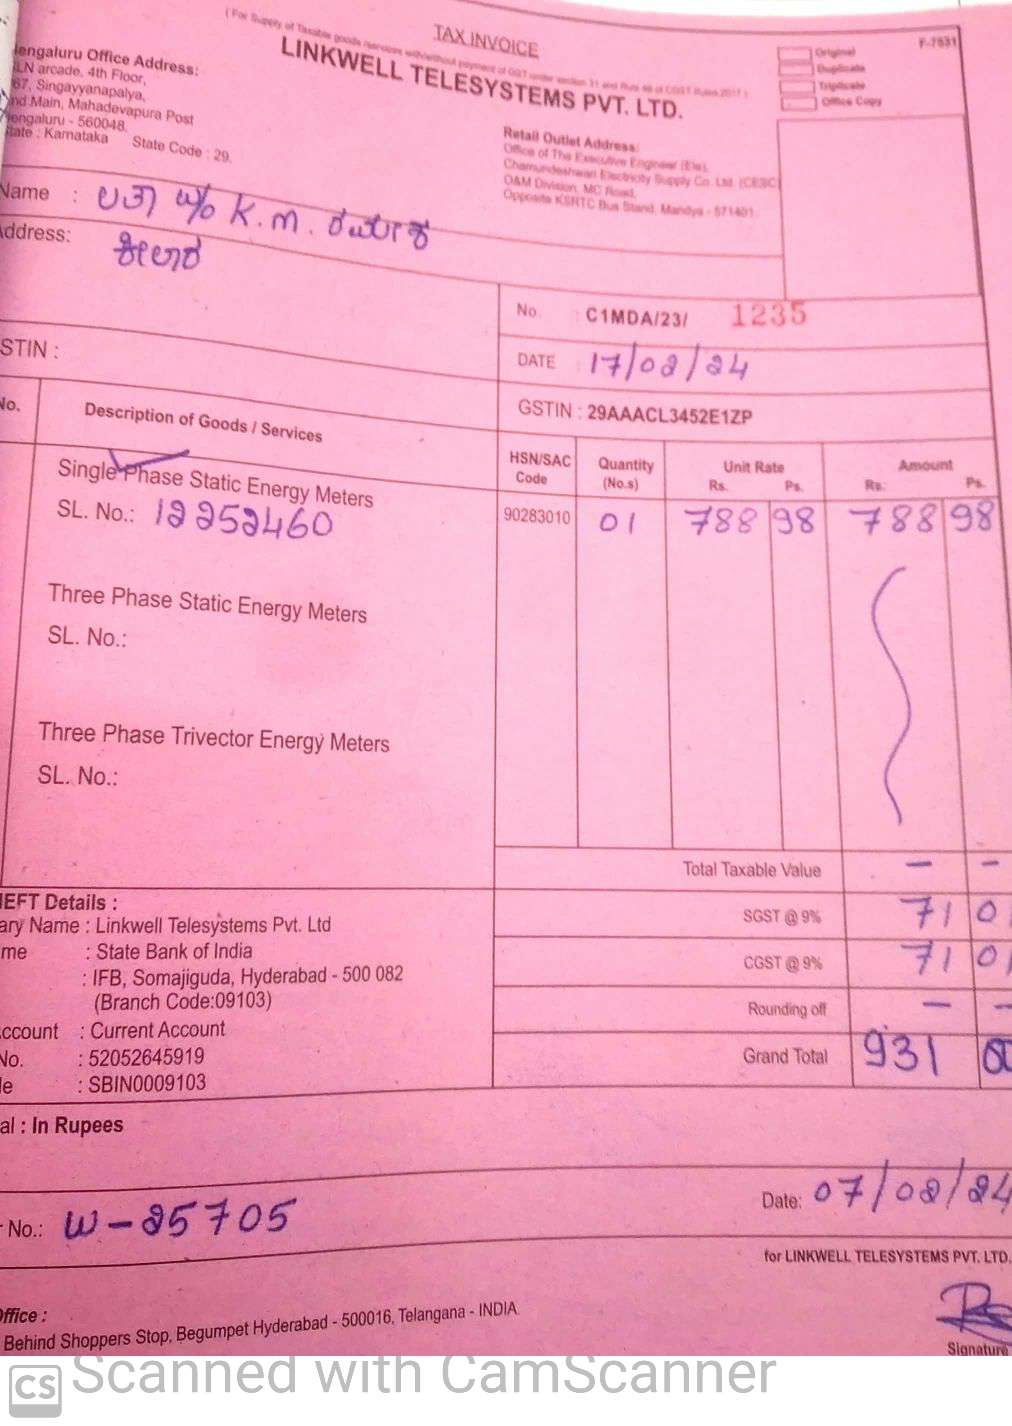 TAX INVOICE
(For Supply of Taxable goods /services with/without payment of GST under section 31 and Rule 46 of CGST Rules 2017)
LINKWELL TELESYSTEMS PVT. LTD.
F-7531
Original
Duplicate
Triplicate
Office Copy
engaluru Office Address:
LN arcade, 4th Floor,
67, Singayyanapalya,
nd Main, Mahadevapura Post
engaluru - 560048.
tate : Karnataka State Code : 29.
Retail Outlet Address:
Office of The Executive Engineer (Ele),
Chamundeshwari Electricity Supply Co. Ltd. (CESC)
O&M Division, MC Road,
Opposite KSRTC Bus Stand, Mandya - 571401.
Name : ಲತಾ w/o K.M.
Address:
No. : C1MDA/23/ 1235
DATE : 17/02/24
STIN :
GSTIN : 29AAACL3452E1ZP
No. Description of Goods / Services HSN/SAC Code Quantity (No.s) Unit Rate Rs. Ps. Amount Rs. Ps.
Single Phase Static Energy Meters
SL. No.: 12252460 90283010 01 788 98 788 98
Three Phase Static Energy Meters
SL. No.:
Three Phase Trivector Energy Meters
SL. No.:
Total Taxable Value — —
SGST @ 9% 71 01
CGST @ 9% 71 01
Rounding off — —
Grand Total 931 00
EFT Details :
ary Name : Linkwell Telesystems Pvt. Ltd
me : State Bank of India
: IFB, Somajiguda, Hyderabad - 500 082
(Branch Code:09103)
ccount : Current Account
No. : 52052645919
le : SBIN0009103
al : In Rupees
No.: W-25705
Date: 07/02/24
for LINKWELL TELESYSTEMS PVT. LTD.
ffice :
Behind Shoppers Stop, Begumpet Hyderabad - 500016, Telangana - INDIA.
Signature
CS Scanned with CamScanner